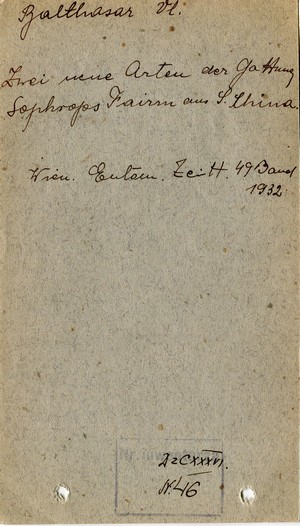 Balthasar Vl.
Zwei neue Arten der Gattung
Sophrops Fairm aus S. China.
Wien. Entom. Zeit. 49 Band
1932.
N. 46